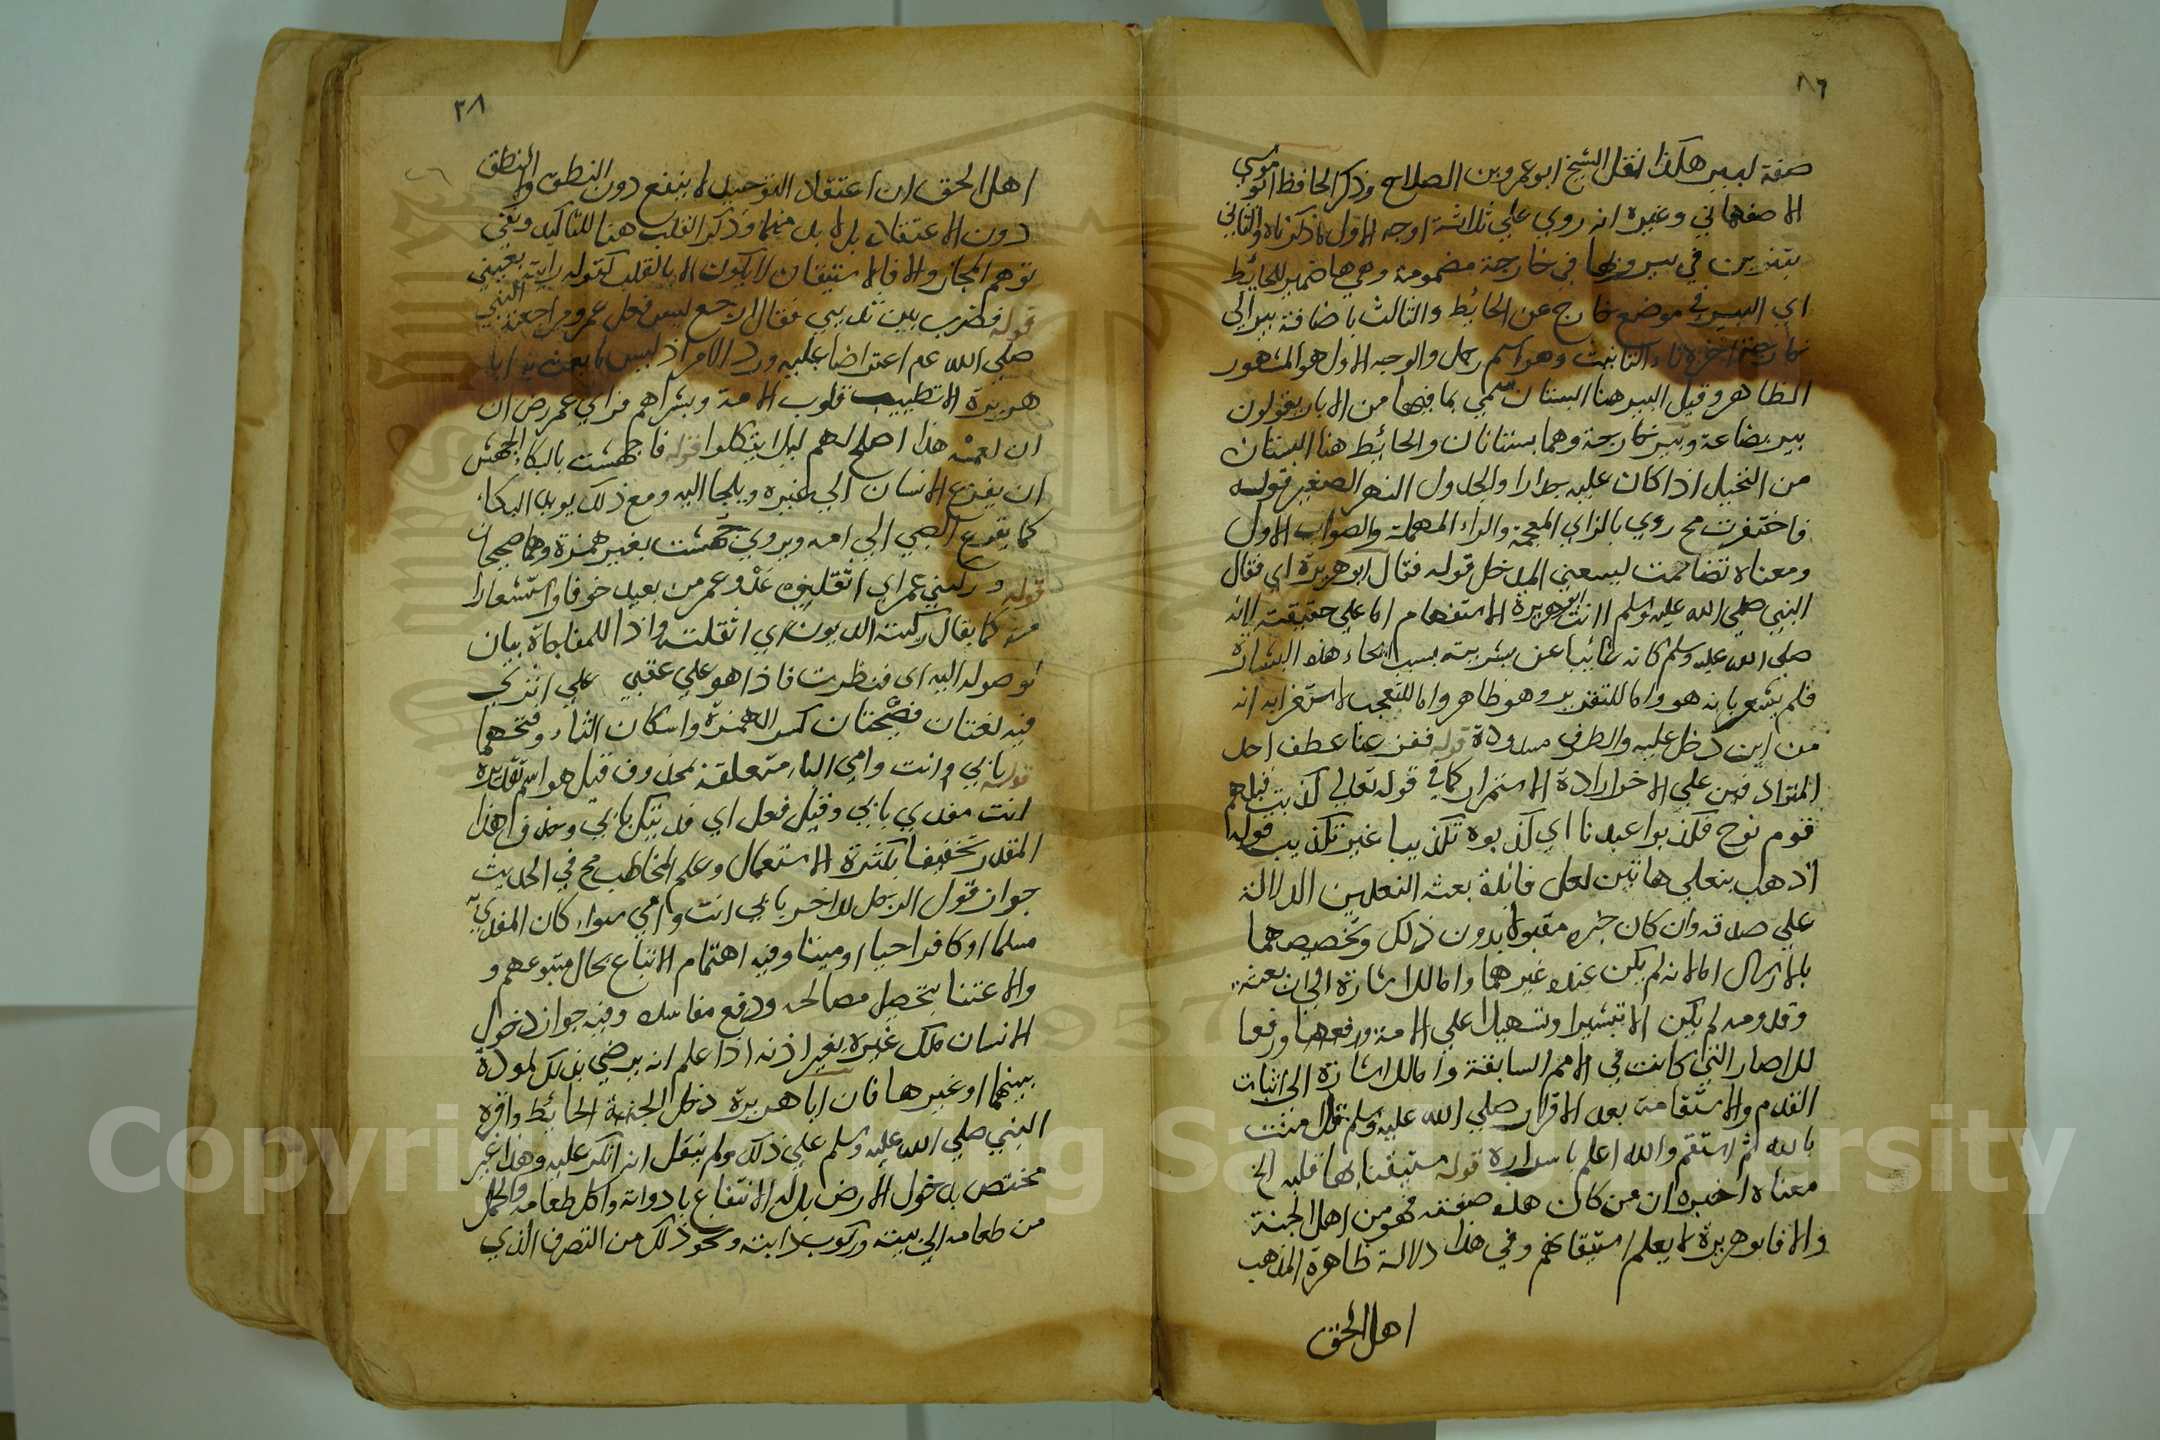 ٨٦
صفة لبير هكذا نقل الشيخ ابو عمرو بن الصلاح وذكر الحافظ ابو موسي
الاصفهاني وغيره انه روي علي ثلاثة اوجه الاول ما ذكرناه والثاني
بتنوين في بير وبها في خارجة مضمومة وهي هاضمير للحائط
اي البير في موضع خارج عن الحائط والثالث باضافة بير الي
خارجة اخره تاء التانيث وهو اسم رجل والوجه الاول هو المشهور
الظاهر وقيل البير هنا البستان سمي بما فيها من الابار يقولون
بير بضاعة وبير خارجة وهما بستانان والحائط هنا البستان
من النخيل اذا كان عليه جدارا والجدول النهر الصغير قوله
فاحتفزت مح روي بالزاي المعجمة والراء المهملة والصواب الاول
ومعناه تضاممت ليسعني المدخل قوله فقال ابو هريرة اي فقال
النبي صلي الله عليه وسلم اانت ابو هريرة الاستفهام اما علي حقيقته لانه
صلي الله عليه وسلم كانه غائبا عن بشريته بسبب ايحاء هذه البشارة
فلم يشعر بانه هو واما للتقرير وهو ظاهر واما للتعجب لاستغرابه انه
من اين دخل عليه والطرق مسدودة قوله ففزعنا عطف احد
المترادفين علي الاخر ارادة الاستمرار كما في قوله تعالي كذبت قبلهم
قوم نوح فكذبوا عبدنا اي كذبوه تكذيبا غير تكذيب قوله
اذهب بنعلي هاتين لعل فائدة بعثه النعلين الدلالة
علي صدقه وان كان خبره مقبولا بدون ذلك وتخصيصهما
بالارسال اما لانه لم يكن عنده غيرهما واما للاشارة الي ان بعثته
وقدومه لم يكن الا تبشيرا وتسهيلا علي الامة ورفعا
للاصار التي كانت في الامم السابقة واما للاشارة الي اثبات
القدم والاستقامة بعد الاقرار صلي الله عليه وسلم قل امنت
بالله ثم استقم والله اعلم باسراره قوله مستيقنا بها قلبه الخ
معناه اخبره ان من كان هذه صفته فهو من اهل الجنة
والا فابو هريرة لا يعلم استيقانهم وفي هذا دلالة ظاهرة المذهب
اهل الحق
٣٨
اهل الحق ان اعتقاد التوحيد لا ينفع دون النطق والنطق
دون الاعتقاد بل لا بد منهما وذكر القلب هنا للتاكيد ونفي
توهم المجاز والا فالاستيقان لا يكون الا بالقلب كقوله رايته بعيني
قوله فضرب بين ثديي فقال ارجع ليس فعل عمر ومراجعته النبي
صلي الله عم اعتراضا عليه ورد الامر اذ ليس ما بعث به ابا
هريرة الا تطييب قلوب الامة وبشراهم فراي عمر رض ان
ان كتمه هذا اصلح لهم ليلا يتكلوا قوله فاجهشت بالبكاء الجهش
ان يفزع الانسان الي غيره ويلجا اليه ومع ذلك يريد البكاء
كما يفزع الصبي الي امه ويروي جهشت بغير همزة وهما صحيحان
قوله وركبني عمر اي اثقلني عدو عمر من بعيد خوفا واستشعارا
منه كما يقال ركبته الديون اي اثقلته واذا للمفاجاة بيان
لوصوله اليه اي فنظرت فاذا هو علي عقبي علي اثري
فيه لغتان فصيحتان كسر الهمزة واسكان الثاء وفتحهما
قوله بابي انت وامي الباء متعلقة بمحذوف قيل هو اسم تقديره
انت مفدي بابي وقيل فعل اي فديتك بابي وحذف هذا
المقدر تخفيفا بكثرة الاستعمال وعلم المخاطب مح في الحديث
جواز قول الرجل للاخر بابي انت وامي سواء كان المفدي به
مسلما او كافرا حيا او ميتا وفيه اهتمام الاتباع بحال متبوعهم و
والاعتنا بتحصيل مصالحه ودفع مفاسده وفيه جواز دخول
الانسان ملك غيره بغير اذنه اذا علم انه يرضي بذلك لمودة
بينهما او غيرها فان ابا هريرة دخل الحائط واقره
النبي صلي الله عليه وسلم علي ذلك ولم ينقل انه انكر عليه وهذا غير
مختص بدخول الارض بل له الانتفاع بادواته واكل طعامه والحمل
من طعامه الي بيته وركوب دابته ونحو ذلك من التصرف الذي
Copyright © King Saud University
1957